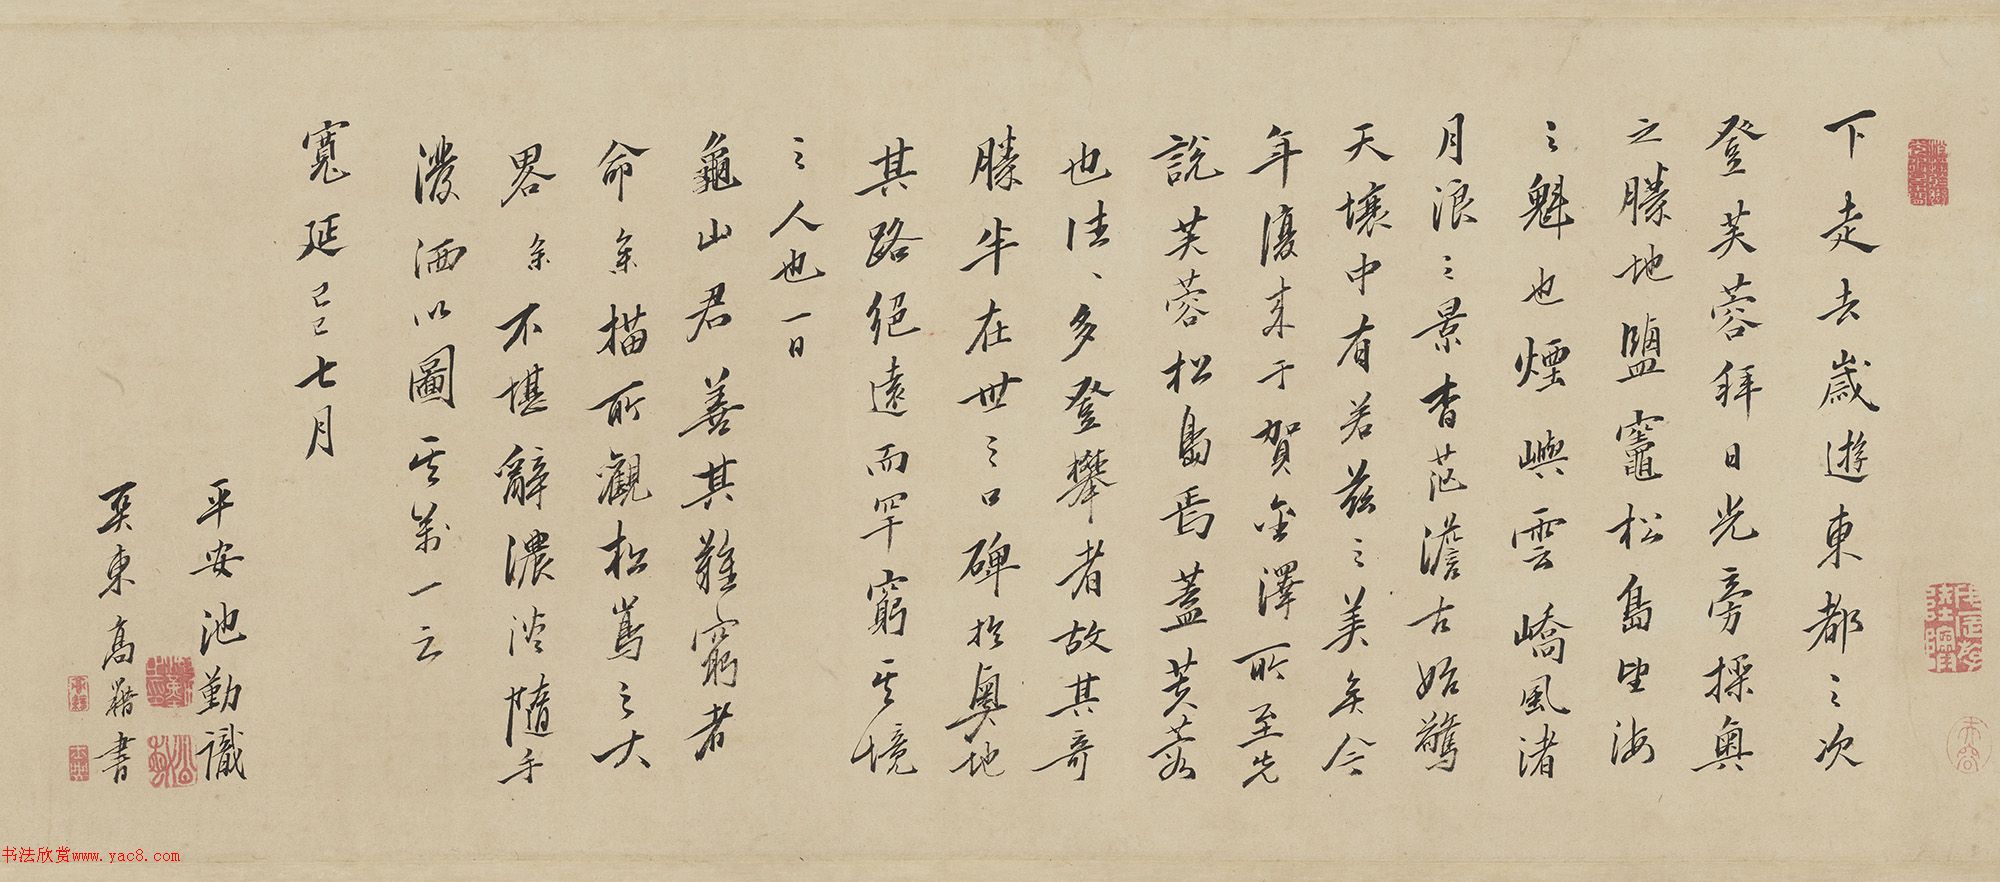 下走去歲遊東都之次
登芙蓉拜日光旁探奧
之勝地鹽竈松島望海
之魁也煙嶼雲嶠風渚
月浪之景杳茫澹古始驚
天壤中有若茲之美矣今
年復来于賀金澤所至先
説芙蓉松島焉蓋芙蓉
也徃〻多登攀者故其奇
勝半在世之口碑於奧地
其路絕遠而罕窮其境
之人也一日
龜山君善其難窮者
命余描所觀松嶌之大
畧余不堪辭濃淡隨手
潑洒以圖其萬一云
寬延己巳七月
平安池勤識
吳東髙 書
书法欣赏www.yac8.com